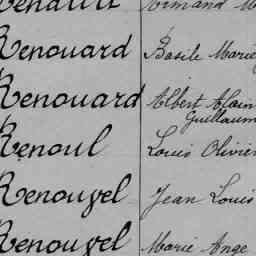 Renouard Basile Marie
Renouard Albert Alain
Guillaum
Renoul Louis Olivier
Renouvel Jean Louis
Renouvel Marie Ange